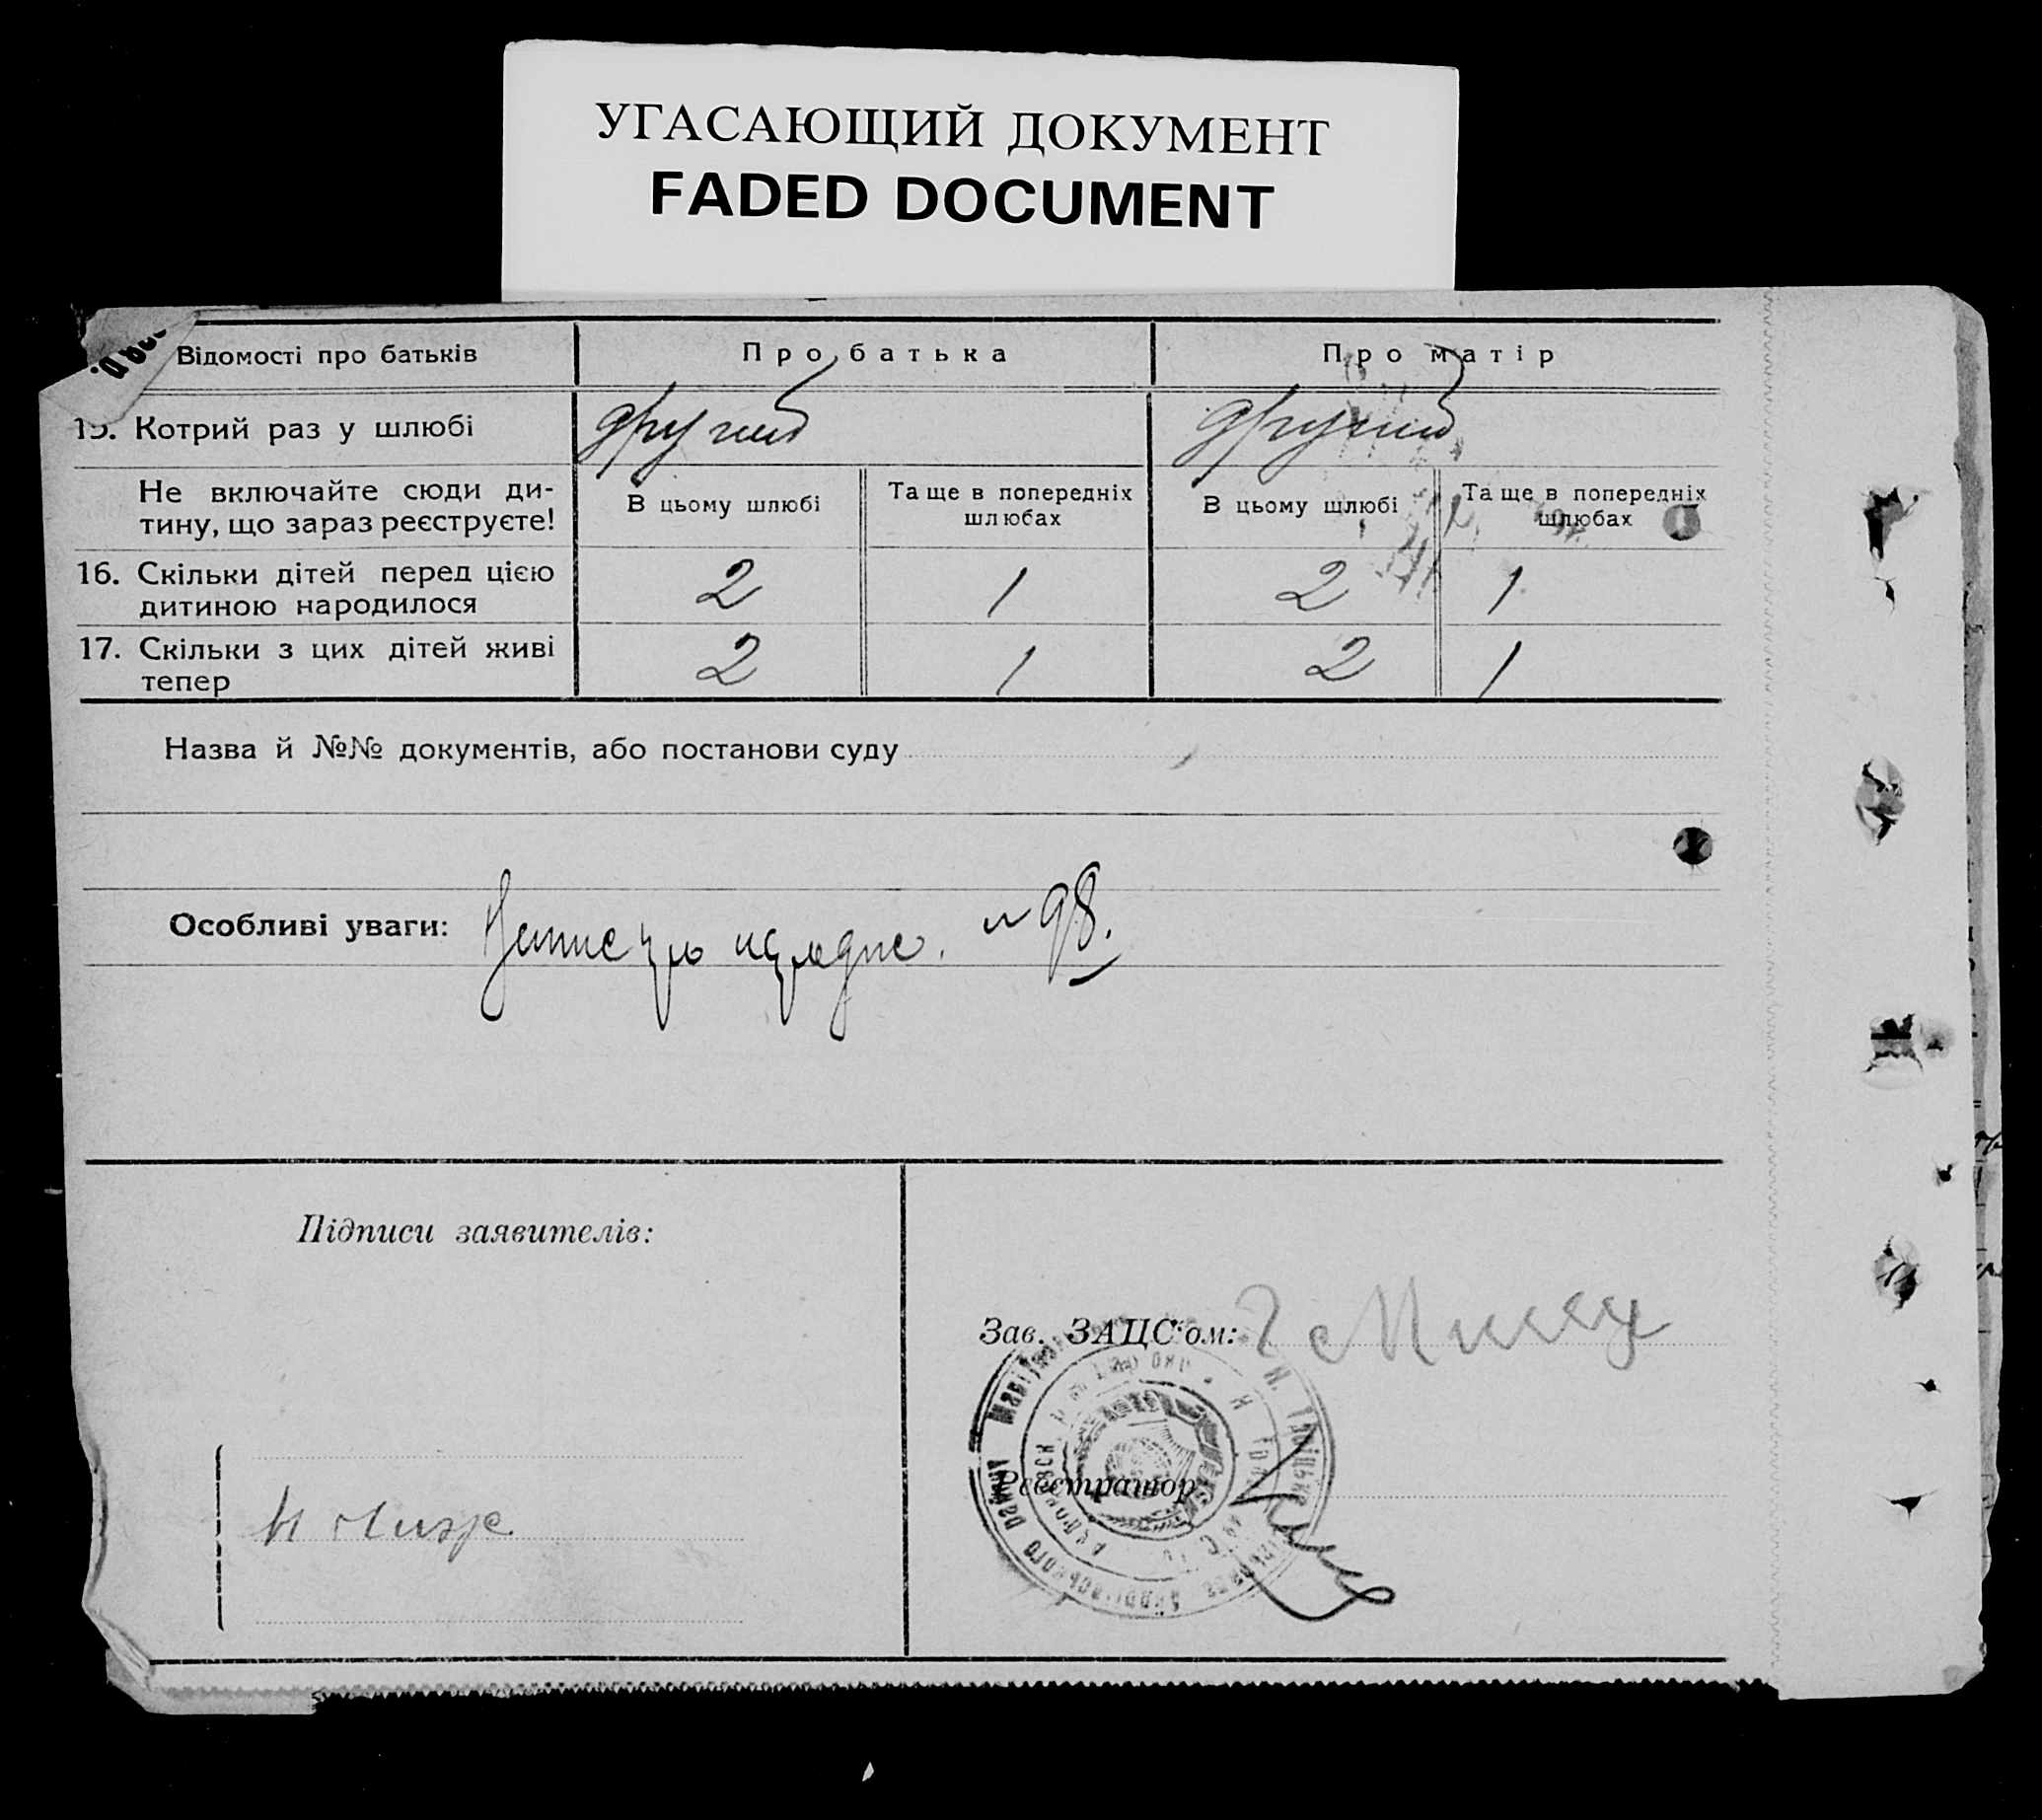 УГАСАЮЩИЙ ДОКУМЕНТ
FADED DOCUMENT
Відомості про батьків
Про батька
Про матір
15. Котрий раз у шлюбі
другий
другий
Не включайте сюди ди-
тину, що зараз реєструєте!
В цьому шлюбі
Та ще в попередніх
шлюбах
В цьому шлюбі
Та ще в попередніх
шлюбах
16. Скільки дітей перед цією
дитиною народилося
2
1
2
1
17. Скільки з цих дітей живі
тепер
2
1
2
1
Назва й №№ документів, або постанови суду
Особливі уваги: Запис про народж. № 98.
Підписи заявителів:
Зав. ЗАЦС'ом:
Реєстратор